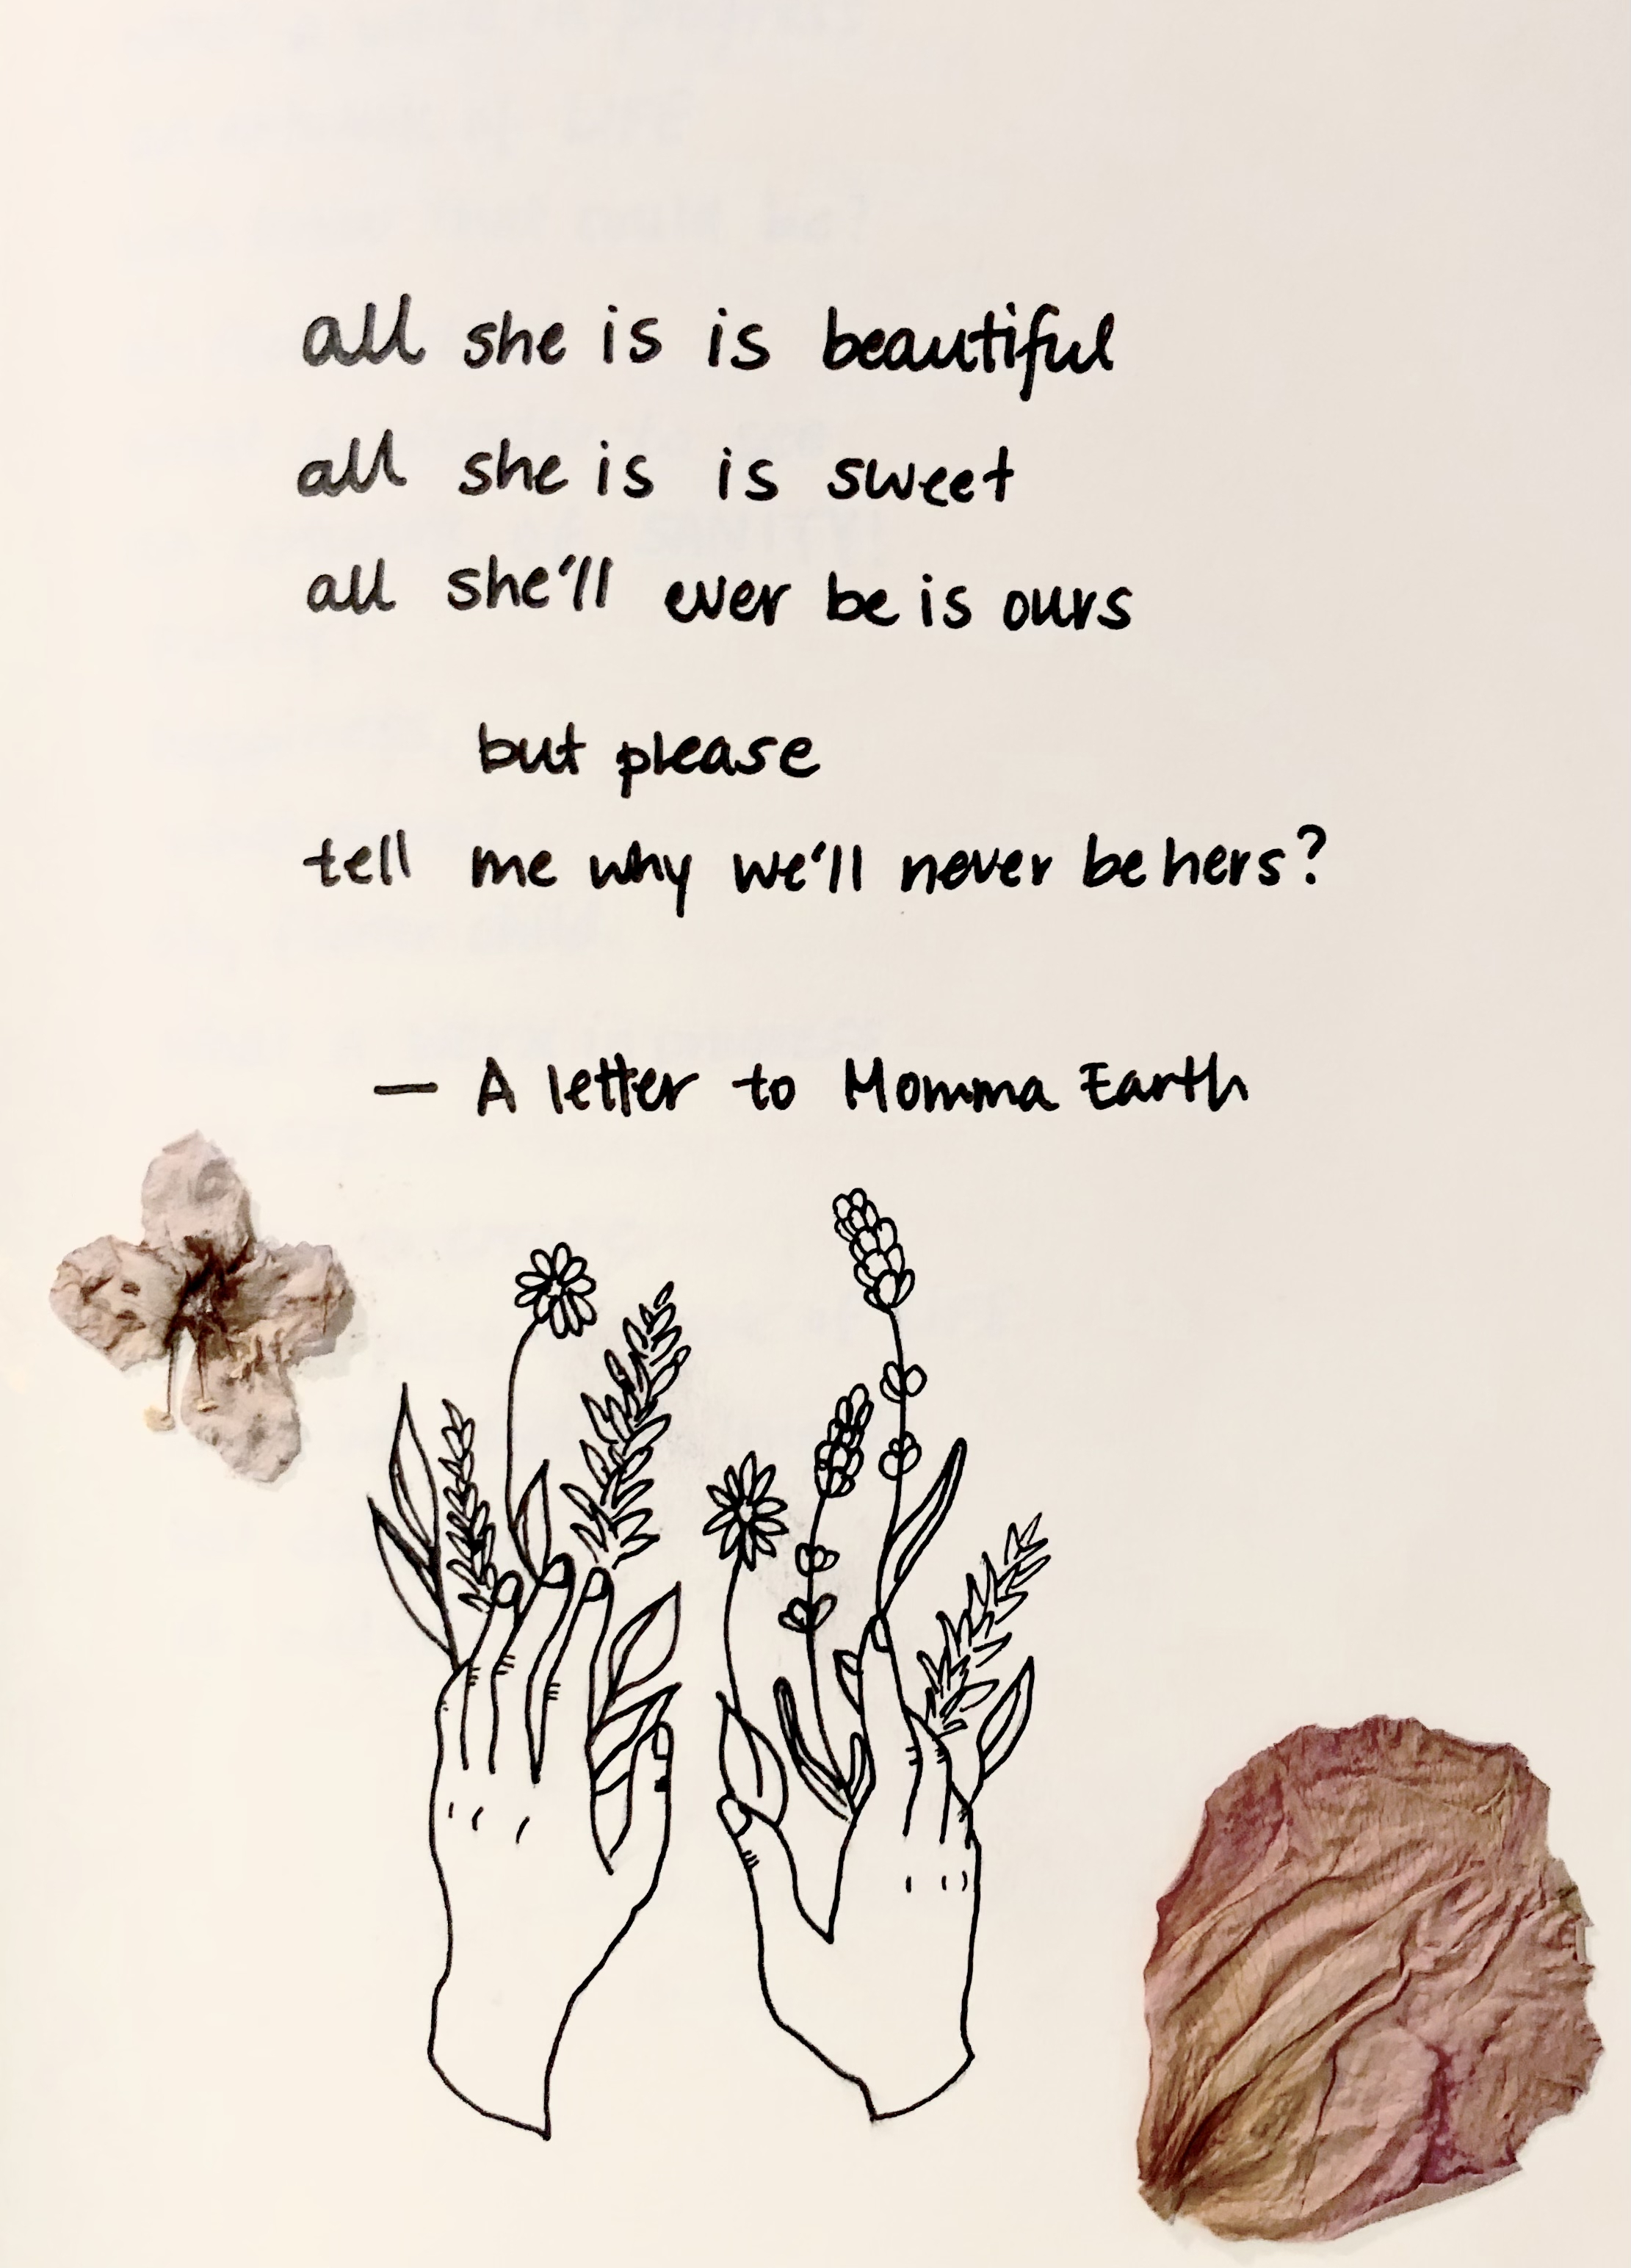 all she is is beautiful
all she is is sweet
all she'll ever be is ours
but please
tell me why we'll never be hers?
— A letter to Momma Earth